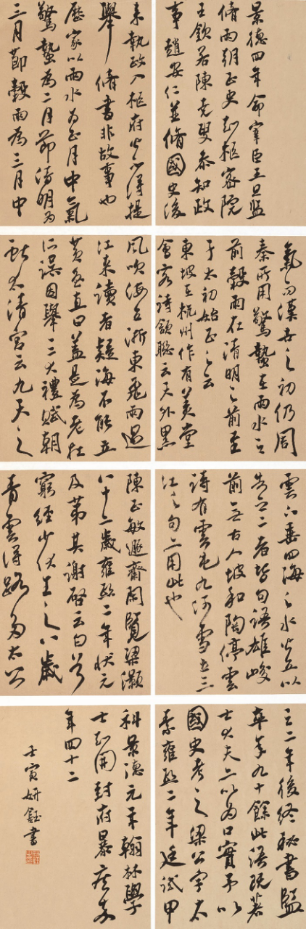 景德四年命宰臣王旦監
修兩朝正史知樞密院
王欽若陳堯叟參知政
事趙安仁並修國史後
來執政入樞府皆不得提
舉修書非故事也
歷家以雨水為正月中氣
驚蟄為二月節清明為
三月節穀雨為三月中
氣而漢世之初仍周
秦所用驚蟄在雨水之
前穀雨在清明之前至
于太初始正之云
東坡在杭州作有美堂
會客詩頷聯云天外黑
風吹海立浙東飛雨過
江來讀者疑海不能立
黃魯直曰蓋是為老杜
所誤因舉三大禮賦朝
獻太清宮云九天之
雲下垂四海之水皆立以
告之二者皆句語雄峻
前無古人坡和陶停雲
詩有雲屯九河雪立三
江之句亦用此也
陳正敏遯齋閒覽梁灝
八十二歲雍熙二年狀元
及第其謝啓云白首
窮經少伏生之八歲
青雲得路多太公
之二年後終秘書監
卒年九十餘此語既著
士大夫亦以為口實予以
國史考之梁公字太
素雍熙二年廷試甲
科景德元年翰林學
士知開封府暴疾卒
年四十二
壬寅妍鈺書